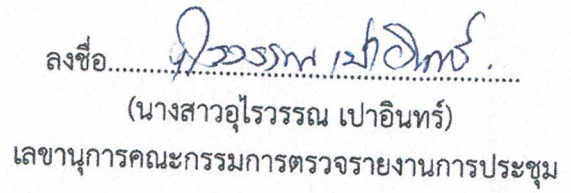 ลงชื่อ อุไรวรรณ เปาอินทร์
(นางสาวอุไรวรรณ เปาอินทร์)
เลขานุการคณะกรรมการตรวจรายงานการประชุม